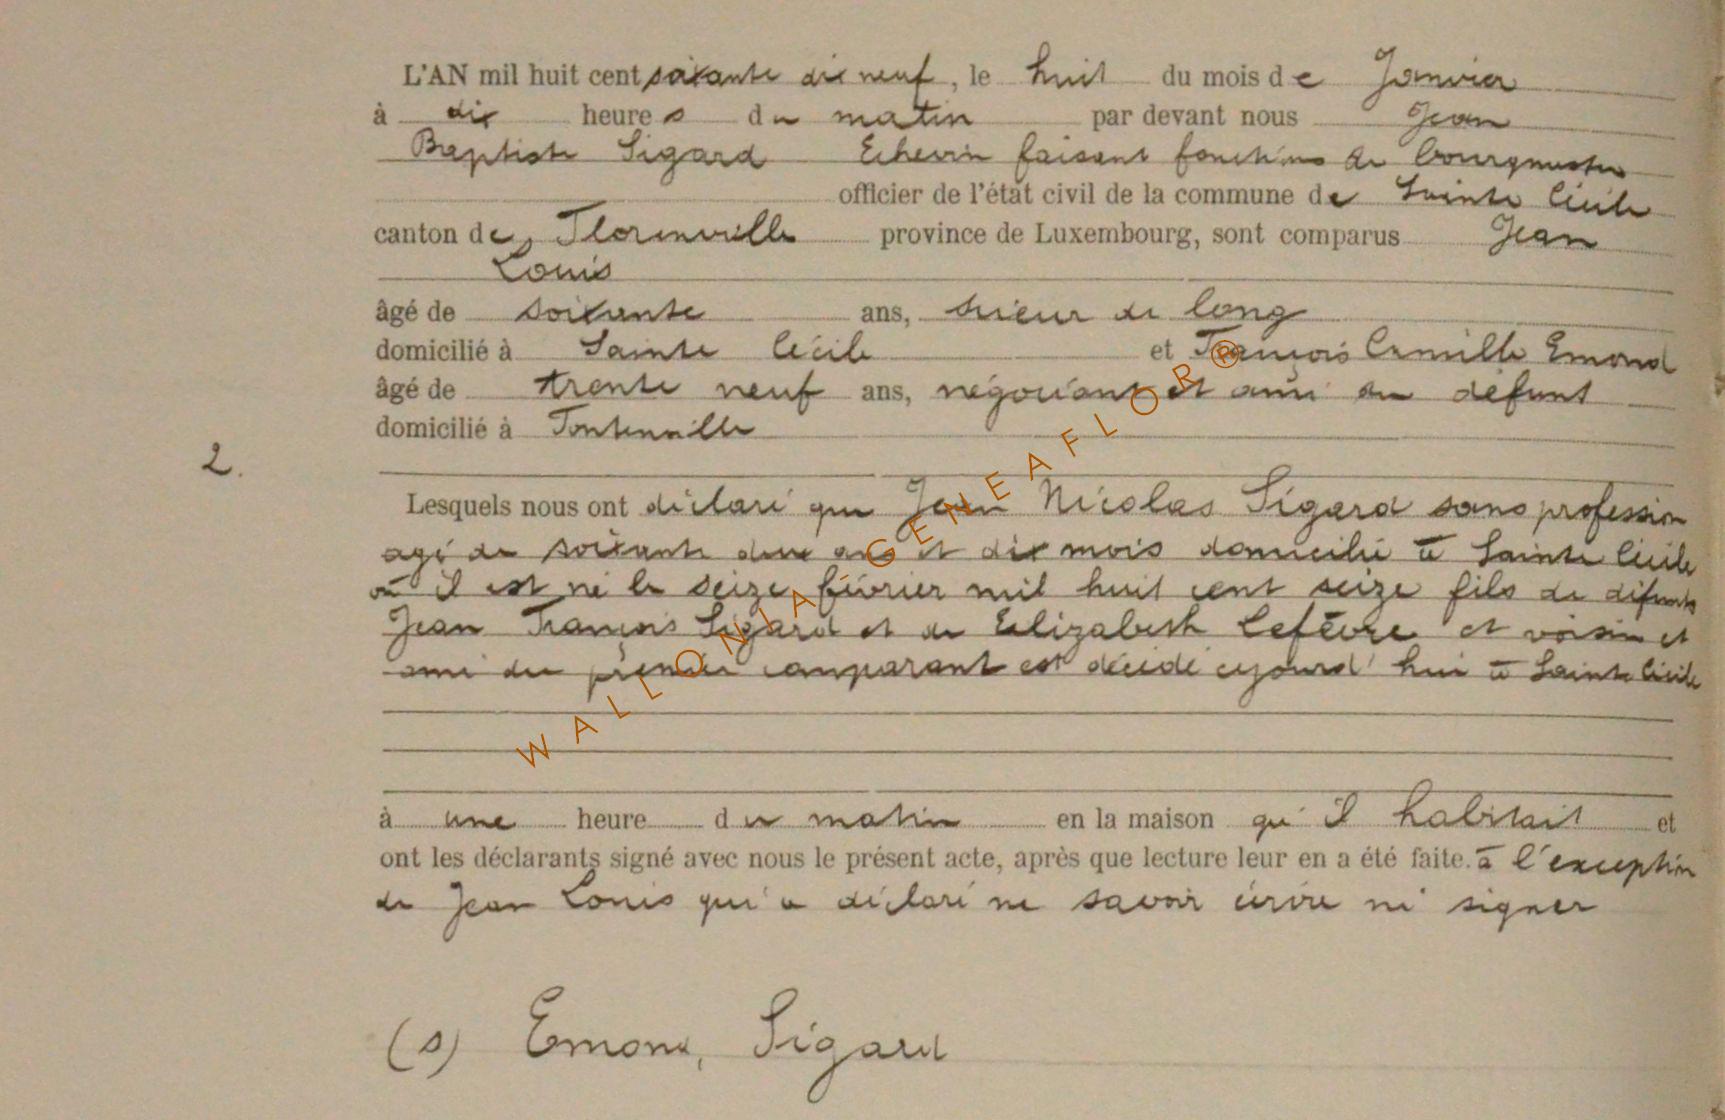 L'AN mil huit cent soixante dix neuf, le huit du mois de Janvier
à dix heures du matin par devant nous Jean
Baptiste Sigard Echevin faisant fonctions de bourgmestre
officier de l'état civil de la commune de Sainte Cécile
canton de Florenville province de Luxembourg, sont comparus Jean
Louis
âgé de soixante ans, scieur de long
domicilié à Sainte Cécile et François Camille Emond
âgé de trente neuf ans, négociant et ami du défunt
domicilié à Fontenoille
2.
Lesquels nous ont déclaré que Jean Nicolas Sigard sans profession
agé de soixante deux ans et dix mois domicilié à Sainte Cécile
où il est né le seize février mil huit cent seize fils de défunts
Jean François Sigard et de Elizabeth Lefèvre et voisin et
ami du premier comparant est décédé cejourd'hui à Sainte Cécile
à une heure du matin en la maison qu'il habitait et
ont les déclarants signé avec nous le présent acte, après que lecture leur en a été faite. à l'exception
de Jean Louis qui a déclaré ne savoir écrire ni signer
(s) Emond, Sigard
WALLONIA GENEAFLOR®